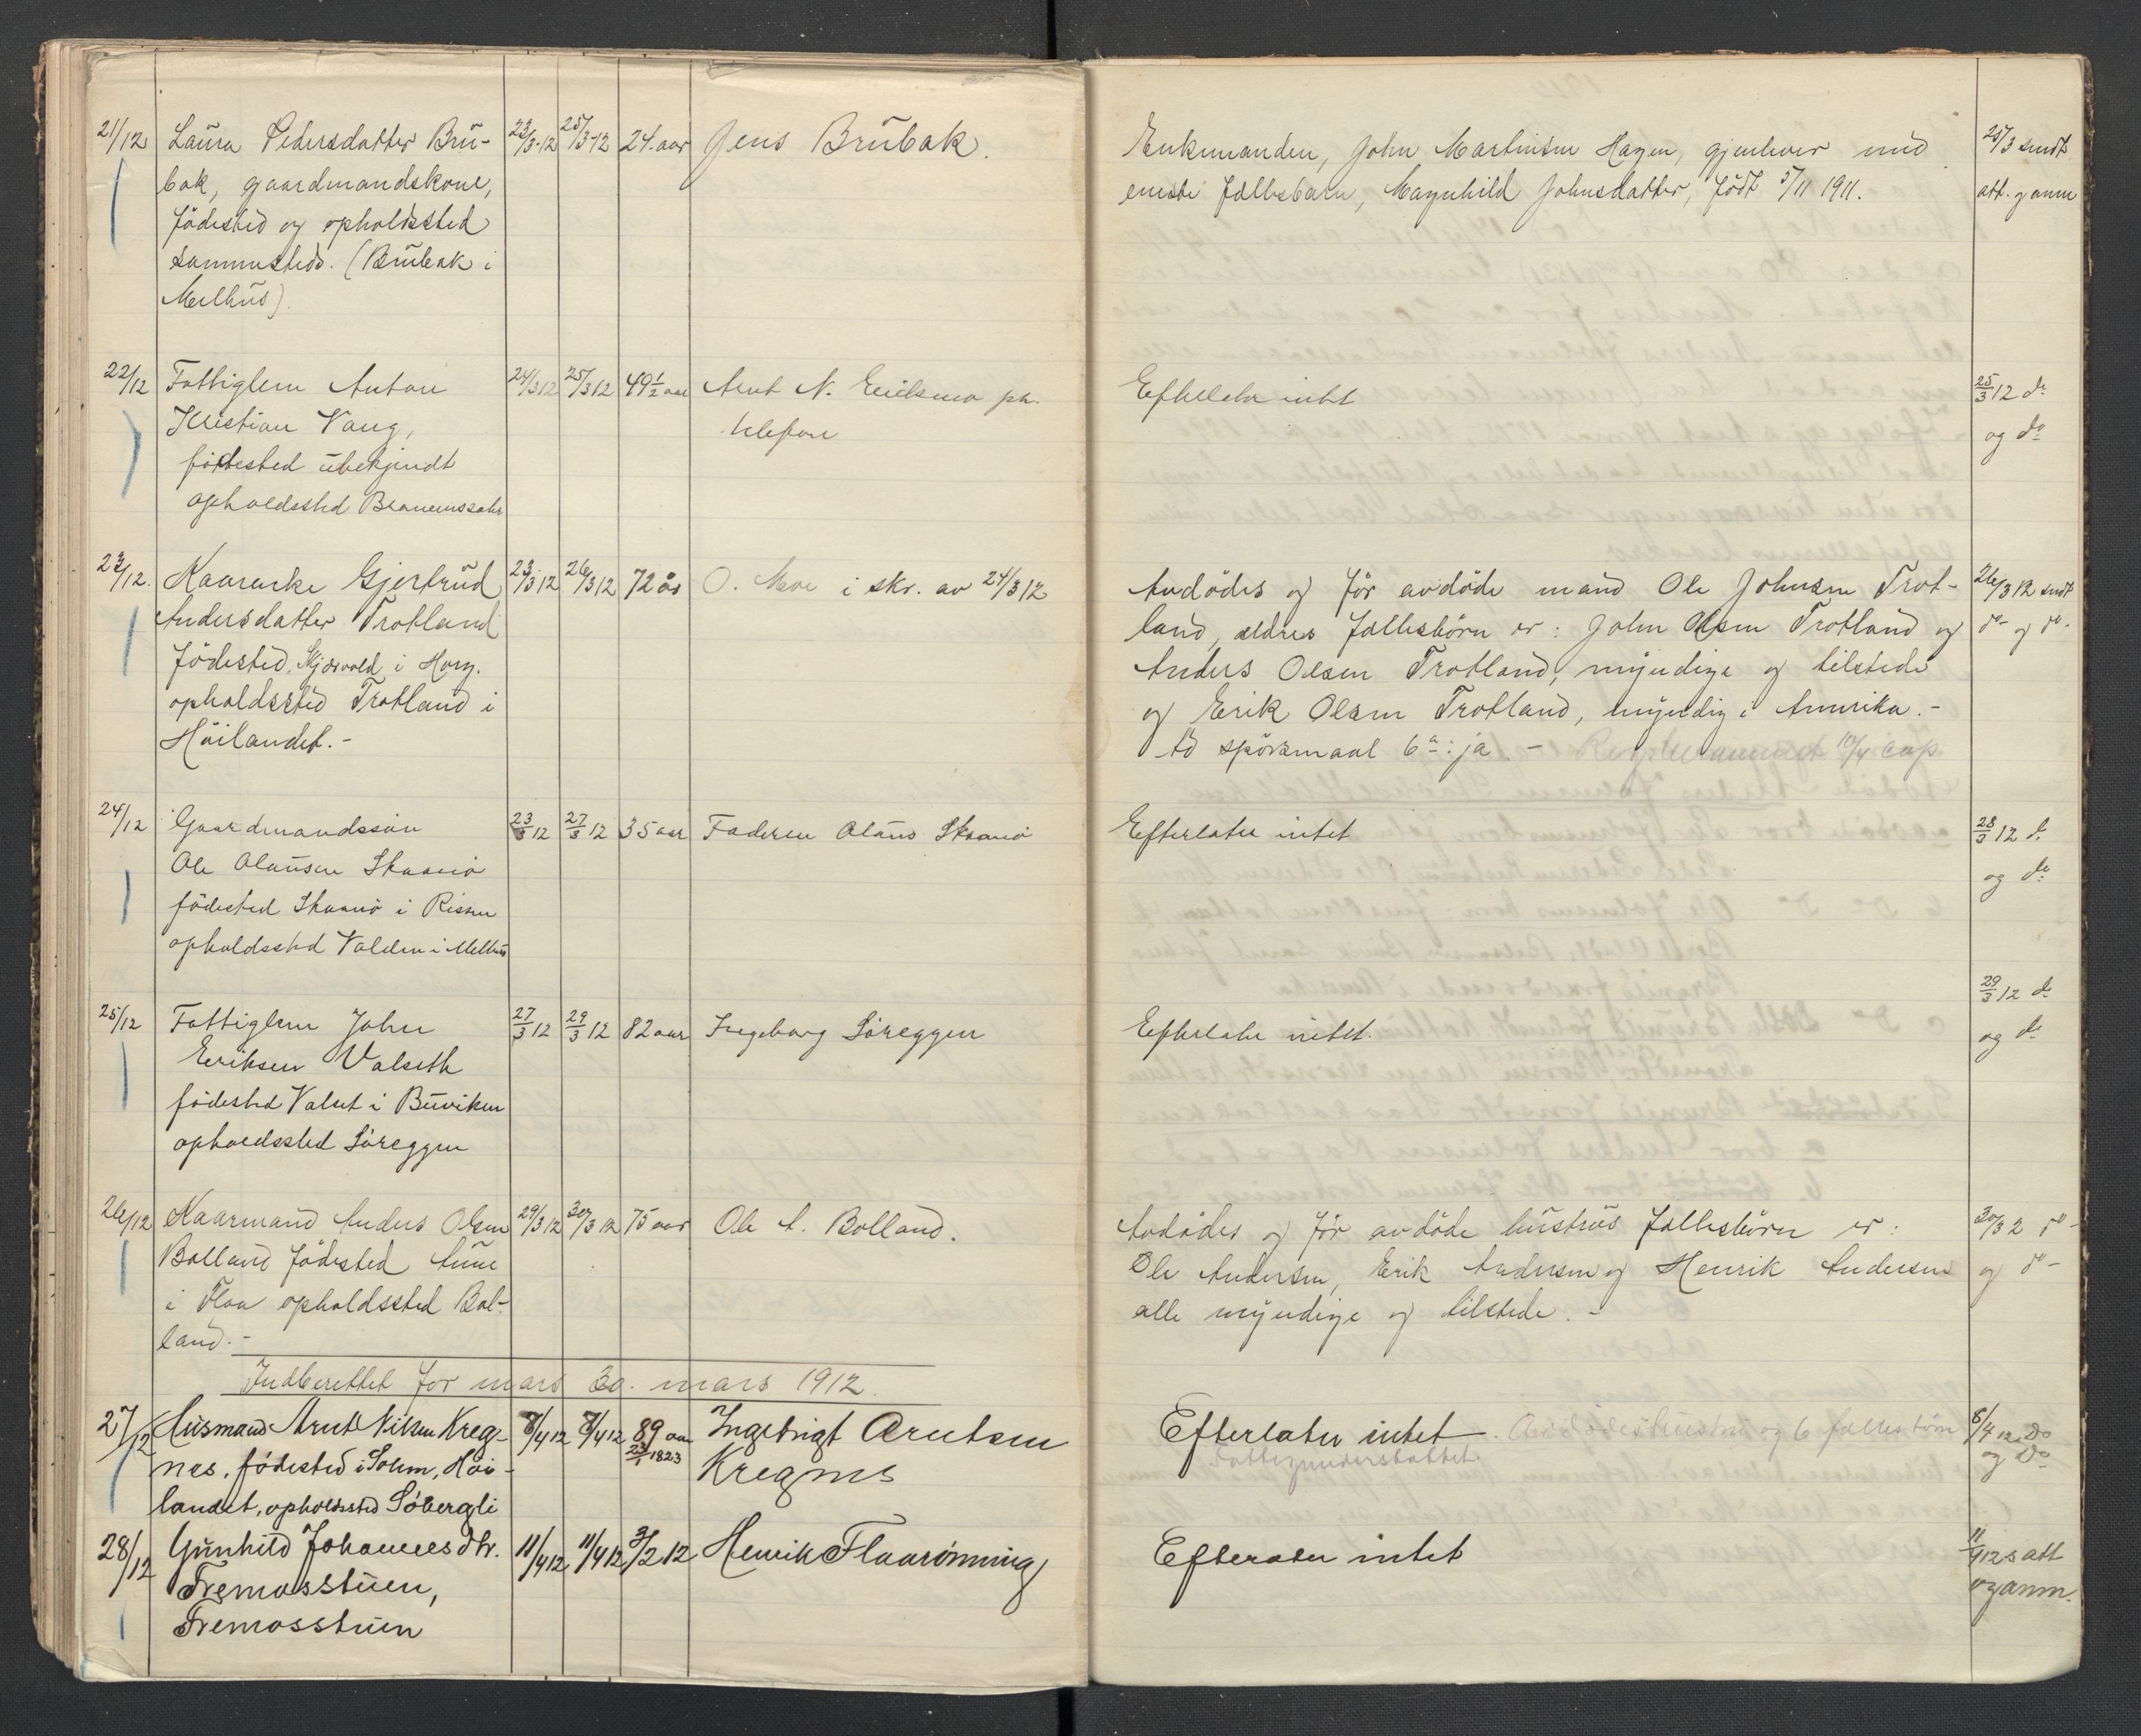 21/12 Laura Pedersdatter Brü- 23/3-12 25/3-12 24. aar Jens Brübak. Enkemanden, John Martinsen Hagen, gjenlever med 25/3 sendt
bak, gaardmandskone, eneste fællesbarn, Magnhild Johnsdatter, født 5/11 1911. att. og anm
fødested og opholdssted
sammesteds. (Brübak i
Melhus).
22/12 Fattiglem Anton 24/3 12 25/3 12 49 1/2 aar Arnt N. Eriksmo pr. Efterlater intet 25/3 12 do
Kristian Vang, telefon og do
fødested ubekjendt
opholdssted
23/12. Kaarenke Gjertrud 23/3 12 26/3 12 72 år O. Moe i skr. av 24/3 12 Avdødes og før avdøde mand Ole Johnsen Trot- 26/3 12 sendt
Andersdatter Trotland land, ældres fællesbørn er: John Olsen Trotland og do- og do-
fødested Skjærvold i Horg. Anders Olsen Trotland, myndige og tilstede
opholdssted Trotland i og Erik Olsen Trotland, myndig i Amerika.-
Høilandet.- Ad spørsmaal 6a: ja. - 10/4
24/12 Gaardmandssøn 23/3 12 27/3 12 35 aar Faderen Olaus Skaanø Efterlater intet 28/3 12 do
Ole Olausen Skaanø og do
fødested Skaanø i Rissen
opholdssted Volden i Melhus
25/12 Fattiglem John 27/3 12 29/3 12 82 aar Ingeborg Løreggen Efterlater intet. 29/3 12 do
Eriksen Valseth og do
fødested Valset i Buviken
opholdssted Løreggen
26/12 Kaarmand Anders Olsen 29/3 12 30/3 12 75 aar Ole A. Bolland. Avdødes og før avdøde hustrus fællesbørn er: 30/3 2 do-
Bolland fødested Aune Ole Andersen, Erik Andersen og Henrik Andersen og do-
i Flaa opholdssted Bol- alle myndige og tilstede.-
land.-
Indberettet for mars 30. mars 1912.
27/12 Husmand Arnt Nilsen Kreg- 8/4 12 8/4 12 89 aar Ingebrigt Arntsen Efterlater intet. Avdødes hustru og 6 fællesbørn 8/4 12 Do
nes, fødested i Solem, Høi- 23/1 1823 Kregnes Fattigunderstøttet. og Do
landet, opholdssted Søbergli
28/12 Gunhild Johannesdtr. 11/4 12 11/4 12 3/2 12 Henrik Flaarønning Efterater intet 11/4 12 s att
Fremosstuen, og anm.
Fremosstuen